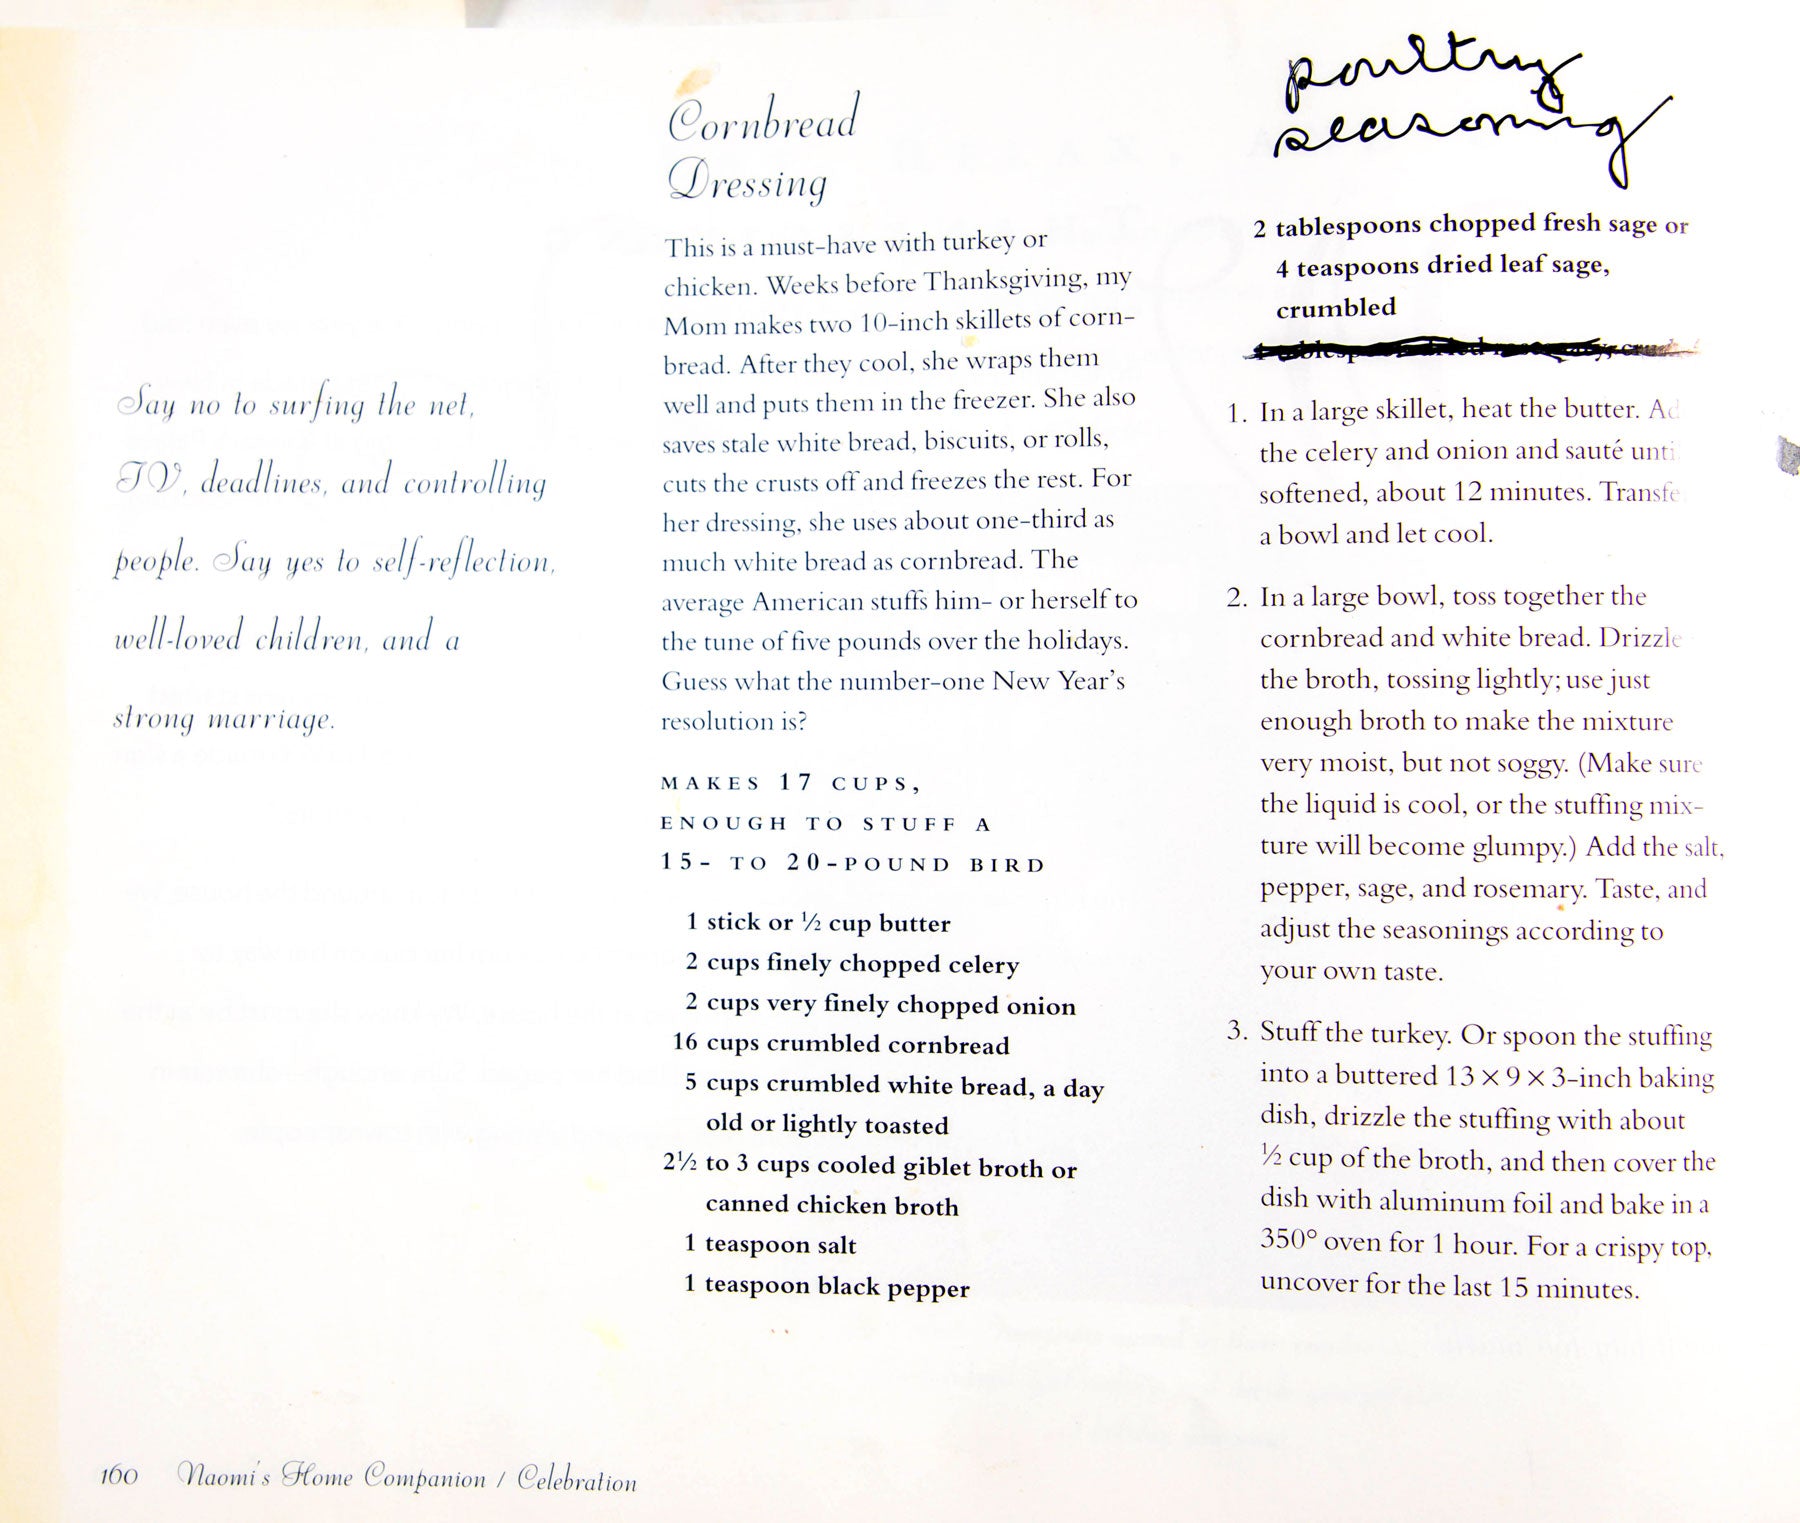 Say no to surfing the net,
TV, deadlines, and controlling
people. Say yes to self-reflection,
well-loved children, and a
strong marriage.
Cornbread
Dressing
This is a must-have with turkey or
chicken. Weeks before Thanksgiving, my
Mom makes two 10-inch skillets of corn-
bread. After they cool, she wraps them
well and puts them in the freezer. She also
saves stale white bread, biscuits, or rolls,
cuts the crusts off and freezes the rest. For
her dressing, she uses about one-third as
much white bread as cornbread. The
average American stuffs him- or herself to
the tune of five pounds over the holidays.
Guess what the number-one New Year's
resolution is?
MAKES 17 CUPS,
ENOUGH TO STUFF A
15- TO 20-POUND BIRD
1 stick or ½ cup butter
2 cups finely chopped celery
2 cups very finely chopped onion
16 cups crumbled cornbread
5 cups crumbled white bread, a day
old or lightly toasted
2½ to 3 cups cooled giblet broth or
canned chicken broth
1 teaspoon salt
1 teaspoon black pepper
poultry
seasoning
2 tablespoons chopped fresh sage or
4 teaspoons dried leaf sage,
crumbled
1. In a large skillet, heat the butter.
the celery and onion and sauté
softened, about 12 minutes.
a bowl and let cool.
2. In a large bowl, toss together the
cornbread and white bread. Drizzle
the broth, tossing lightly; use just
enough broth to make the mixture
very moist, but not soggy. (Make sure
the liquid is cool, or the stuffing mix-
ture will become glumpy.) Add the salt,
pepper, sage, and rosemary. Taste, and
adjust the seasonings according to
your own taste.
3. Stuff the turkey. Or spoon the stuffing
into a buttered 13 × 9 × 3-inch baking
dish, drizzle the stuffing with about
½ cup of the broth, and then cover the
dish with aluminum foil and bake in a
350° oven for 1 hour. For a crispy top,
uncover for the last 15 minutes.
160 Naomi's Home Companion / Celebration